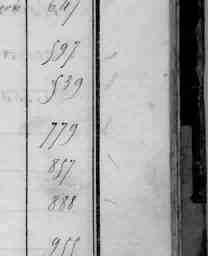 647
597
539
779
857
888
955